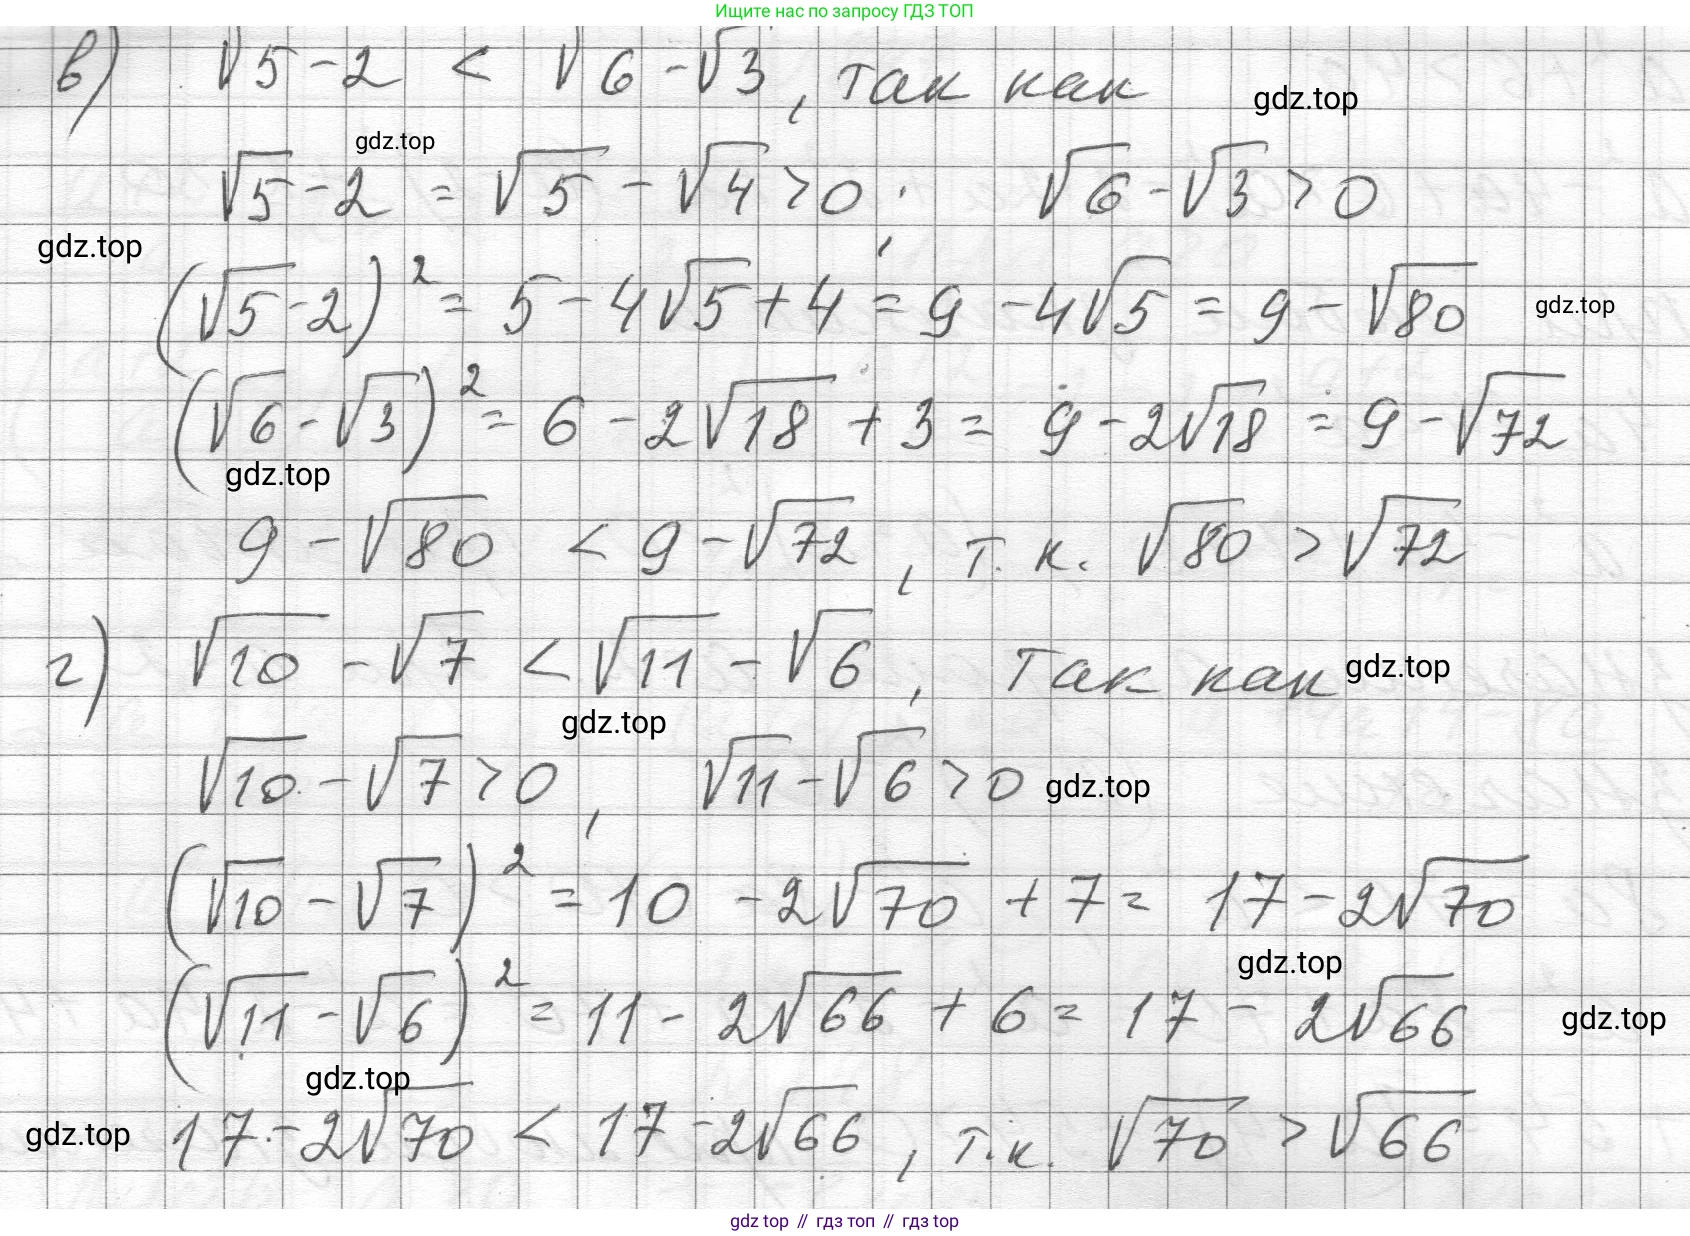 Ищите нас по запросу ГДЗ ТОП
в) √5 - 2 < √6 - √3, так как
gdz.top
gdz.top
√5 - 2 = √5 - √4 > 0, √6 - √3 > 0
gdz.top
(√5 - 2)² = 5 - 4√5 + 4 = 9 - 4√5 = 9 - √80
gdz.top
(√6 - √3)² = 6 - 2√18 + 3 = 9 - 2√18 = 9 - √72
gdz.top
9 - √80 < 9 - √72, т.к. √80 > √72
г) √10 - √7 < √11 - √6, так как
gdz.top
gdz.top
√10 - √7 > 0, √11 - √6 > 0
gdz.top
(√10 - √7)² = 10 - 2√70 + 7 = 17 - 2√70
gdz.top
(√11 - √6)² = 11 - 2√66 + 6 = 17 - 2√66
gdz.top
gdz.top
gdz.top
17 - 2√70 < 17 - 2√66, т.к. √70 > √66
gdz top // гдз топ // гдз top